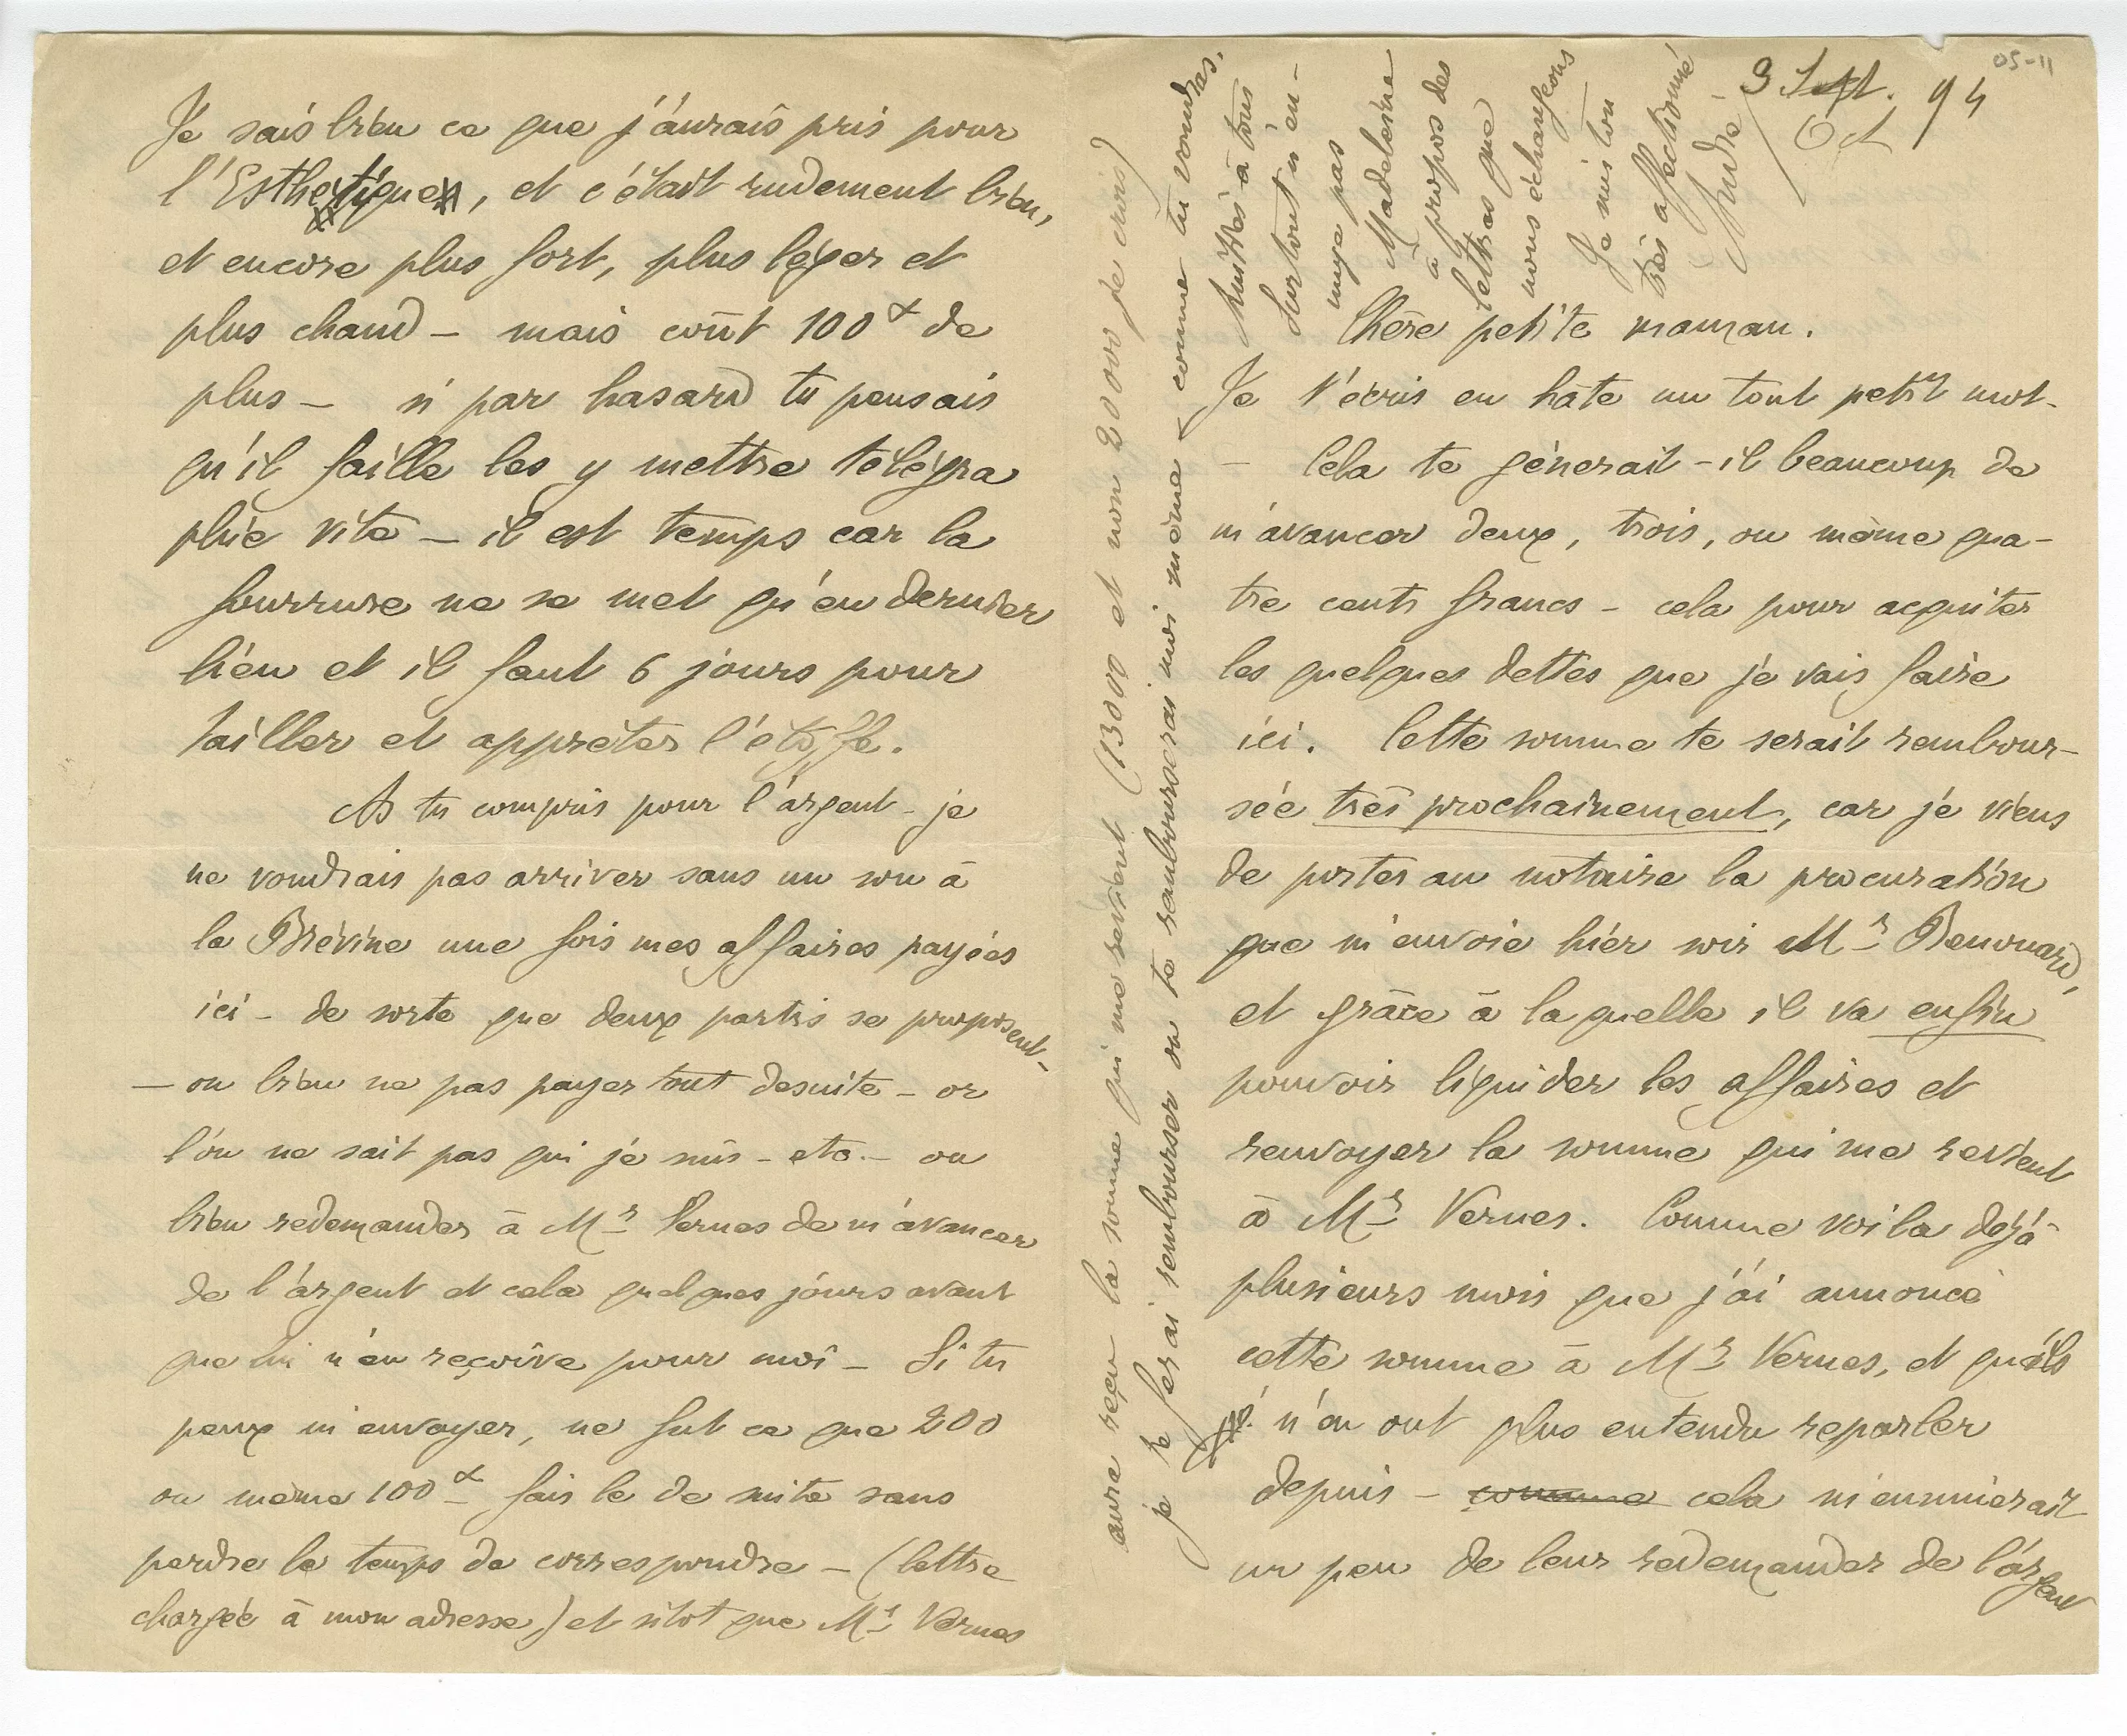 05-11
3 Sept. 94
Oct
Chère petite maman.
Je t'écris en hâte un tout petit mot.
– Cela te génerait-il beaucoup de
m'avancer deux, trois, ou même qua-
tre cents francs – cela pour acquiter
les quelques dettes que je vais faire
ici. Cette somme te serait rembour-
sée très prochainement, car je viens
de porter au notaire la procuration
que m'envoie hier soir Mr
et grâce à laquelle il va enfin
pouvoir liquider les affaires et
renvoyer la somme qui me revient
à Mr Vernes. Comme voila dejà
plusieurs mois que j'ai annoncé
cette somme à Mr Vernes, et qu'ils
n'en ont plus entendu reparler
depuis – comme cela m'ennuierait
un peu de leur redemander de l'argent
Je sais bien ce que j'aurais pris pour
l'Esthetique, et c'était rudement bien,
et encore plus fort, plus léger et
plus chaud – mais coût 100f de
plus – si par hasard tu pensais
qu'il faille les y mettre télégra
phie vite – il est temps car la
fourrure ne se met qu'en dernier
lieu et il faut 6 jours pour
tailler et appreter l'étoffe.
As tu compris pour l'argent – je
ne voudrais pas arriver sans un sou à
la Brévine une fois mes affaires payées
ici – de sorte que deux partis se proposent –
– ou bien ne pas payer tout desuite – or
l'on ne sait pas qui je suis – etc. – ou
bien redemander à Mr Vernes de m'avancer
de l'argent et cela quelques jours avant
que lui n'en reçoive pour moi – Si tu
peux m'envoyer, ne fut ce que 200
ou même 100f – fais le de suite sans
perdre le temps de correspondre – (lettre
chargée à mon adresse) et sitot que Mr Vernes
aura reçu la somme qui me revient (13000 et non 20000 je crois)
je te ferai rembourser ou te rembourserai moi même – comme tu voudras.
Amitiés à tous
Surtout n'en-
nuye pas
Madeleine
à propos des
lettres que
nous échangeons
Je suis ton
très affectionné
André –